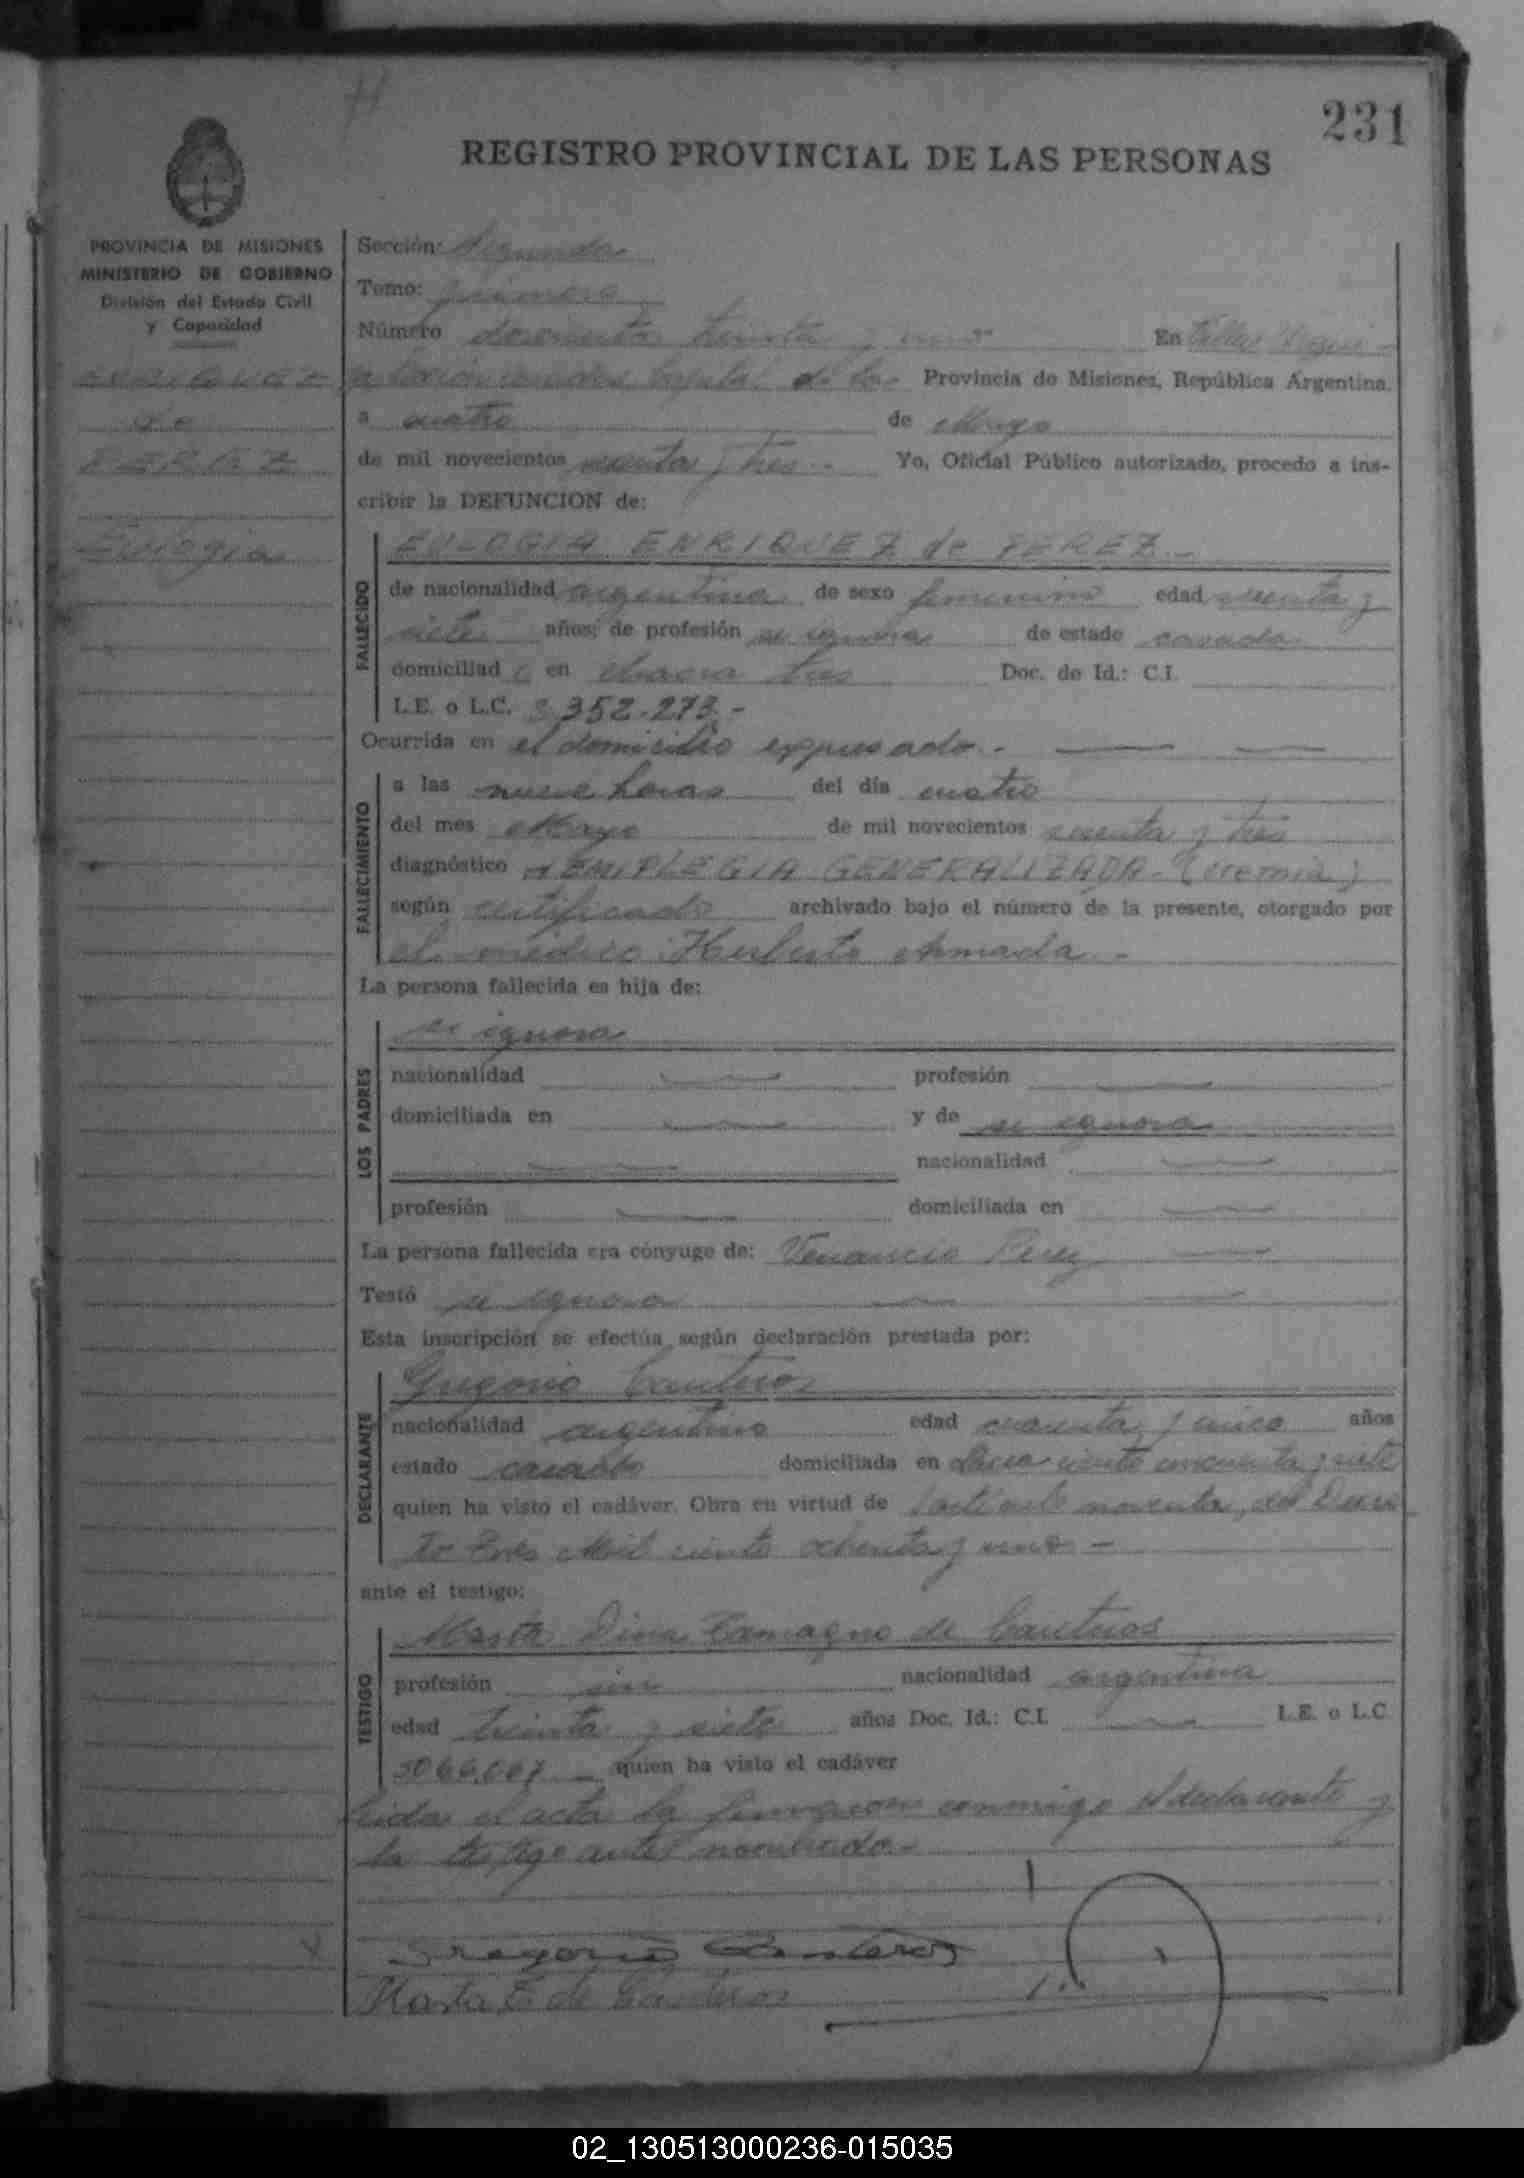 231
REGISTRO PROVINCIAL DE LAS PERSONAS
PROVINCIA DE MISIONES
MINISTERIO DE GOBIERNO
División del Estado Civil
y Capacidad
ENRIQUEZ
de
PEREZ
Eulogia
Sección: Segunda
Tomo: primero
Número doscientos treinta y uno En
Capital de la Provincia de Misiones, República Argentina.
a cuatro de Mayo
de mil novecientos sesenta y tres Yo, Oficial Público autorizado, procedo a ins-
cribir la DEFUNCION de:
FALLECIDO
EULOGIA ENRIQUEZ de PEREZ.-
de nacionalidad argentina de sexo femenino edad sesenta y
siete años; de profesión se ignora de estado casada
domiciliad a en chacra tres Doc. de Id.: C.I.
L.E. o L.C. 3.352.273.-
Ocurrida en el domicilio expresado.-
FALLECIMIENTO
a las nueve horas del día cuatro
del mes Mayo de mil novecientos sesenta y tres
diagnóstico HEMIPLEGIA GENERALIZADA- (uremia)
según certificado archivado bajo el número de la presente, otorgado por
el médico Heriberto Armada.-
La persona fallecida es hija de:
LOS PADRES
se ignora
nacionalidad profesión
domiciliada en y de se ignora
nacionalidad
profesión domiciliada en
La persona fallecida era cónyuge de: Venancio Perez
Testó se ignora
Esta inscripción se efectúa según declaración prestada por:
DECLARANTE
Gregorio Canteros
nacionalidad argentino edad cuarenta y cinco años
estado casado domiciliada en chacra ciento cincuenta y siete
quien ha visto el cadáver. Obra en virtud de l artículo noventa, del Decre
to Tres Mil ciento ochenta y uno.-
ante el testigo:
TESTIGO
Marta Dina Tamagno de Canteros
profesión sin nacionalidad argentina
edad treinta y siete años Doc. Id.: C.I. L.E. o L.C.
quien ha visto el cadáver
Leída el acta la firmaron conmigo el declarante y
la testigo antes nombrado.-
Gregorio Canteros
Marta T. de Canteros
02_130513000236-015035